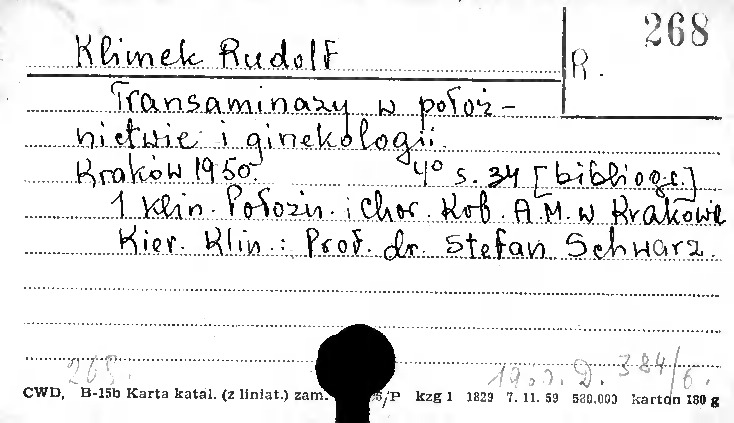 268
Klimek Rudolf
R.
Transaminazy w położ-
nictwie i ginekologii.
Kraków 1950. 4° s. 34 [bibliogr.]
1 Klin. Położn. i Chor. Kob. A.M. w Krakowie
Kier. Klin.: Prof. dr. Stefan Schwarz.
268. 384/6.
CWD, B-15b Karta katal. (z liniat.) zam. /P kzg 1 1829 7. 11. 59 580.000 karton 180 g